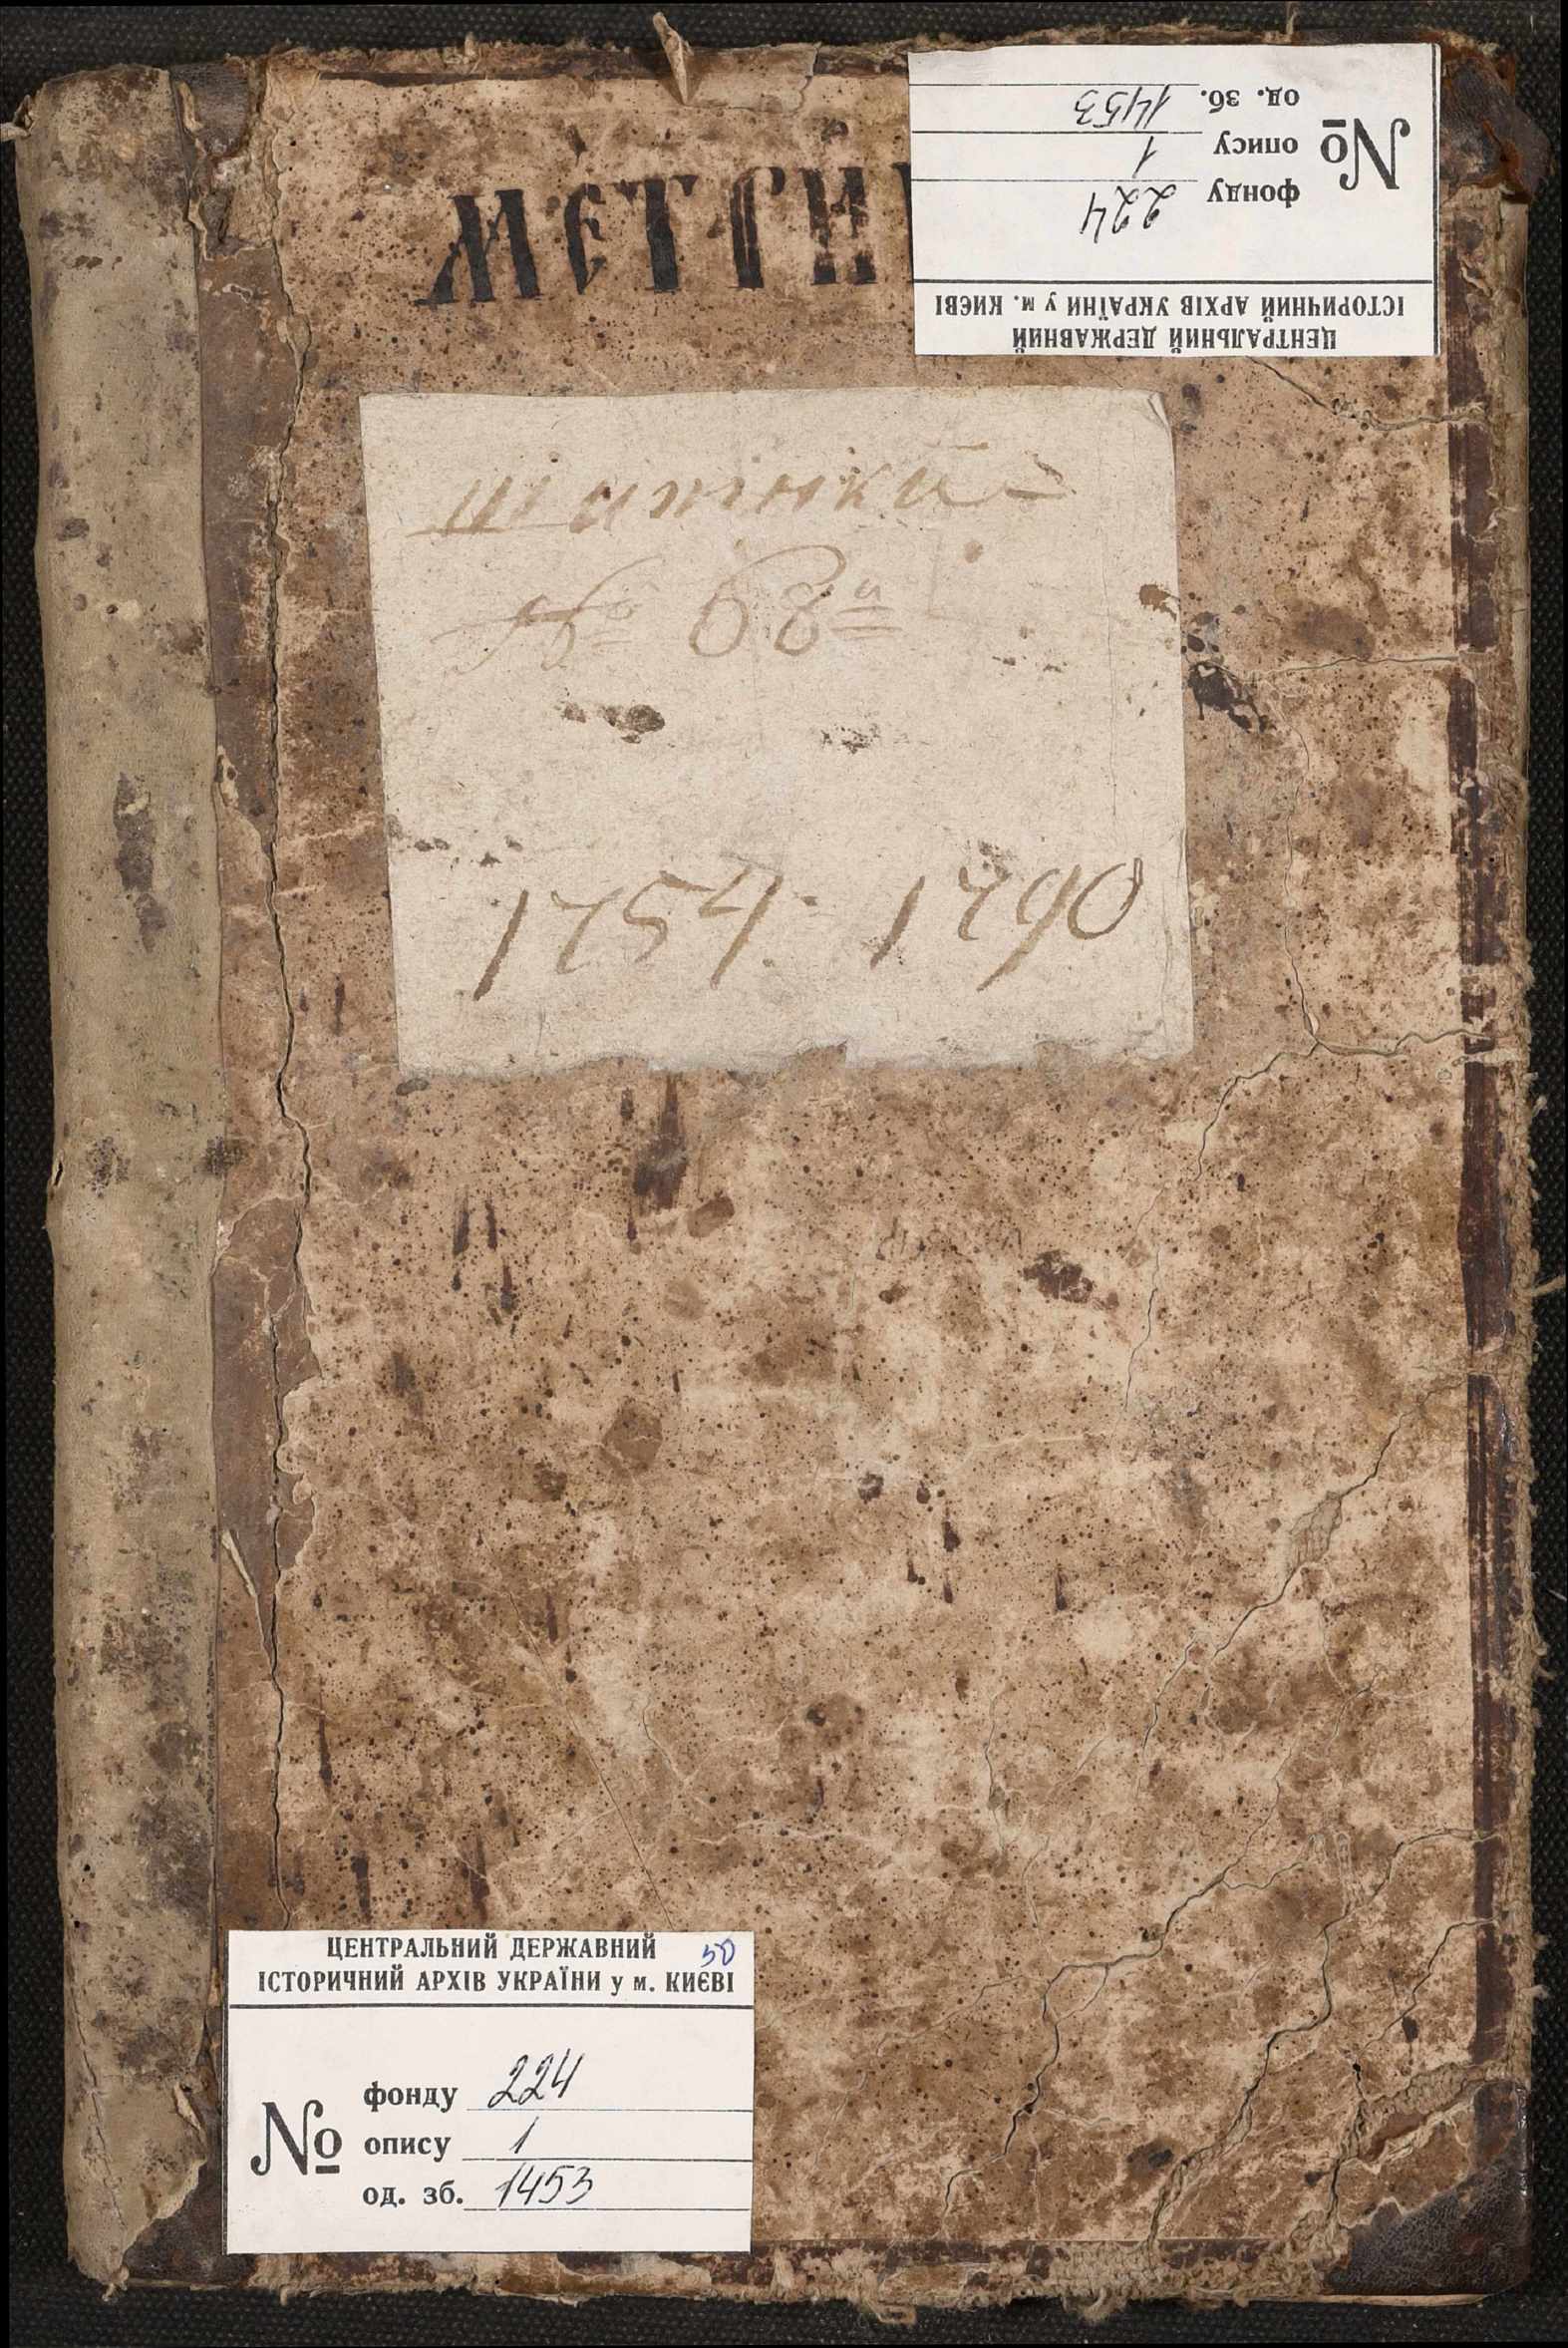 МЕТРИ
№
фонду 224
опису 1
од. зб. 1453
ЦЕНТРАЛЬНИЙ ДЕРЖАВНИЙ
ІСТОРИЧНИЙ АРХІВ УКРАЇНИ у м. КИЄВІ
№ 68а
1754 - 1790
ЦЕНТРАЛЬНИЙ ДЕРЖАВНИЙ 50
ІСТОРИЧНИЙ АРХІВ УКРАЇНИ у м. КИЄВІ
№
фонду 224
опису 1
од. зб. 1453